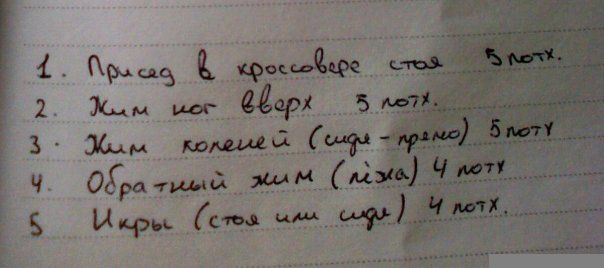 1. Присед в кроссовере стоя 5 потх.
2. Жим ног вверх 5 потх.
3. Жим коленей (сидя - прямо) 5 потх
4. Обратный жим (лёжа) 4 потх
5 Икры (стоя или сидя) 4 потх.